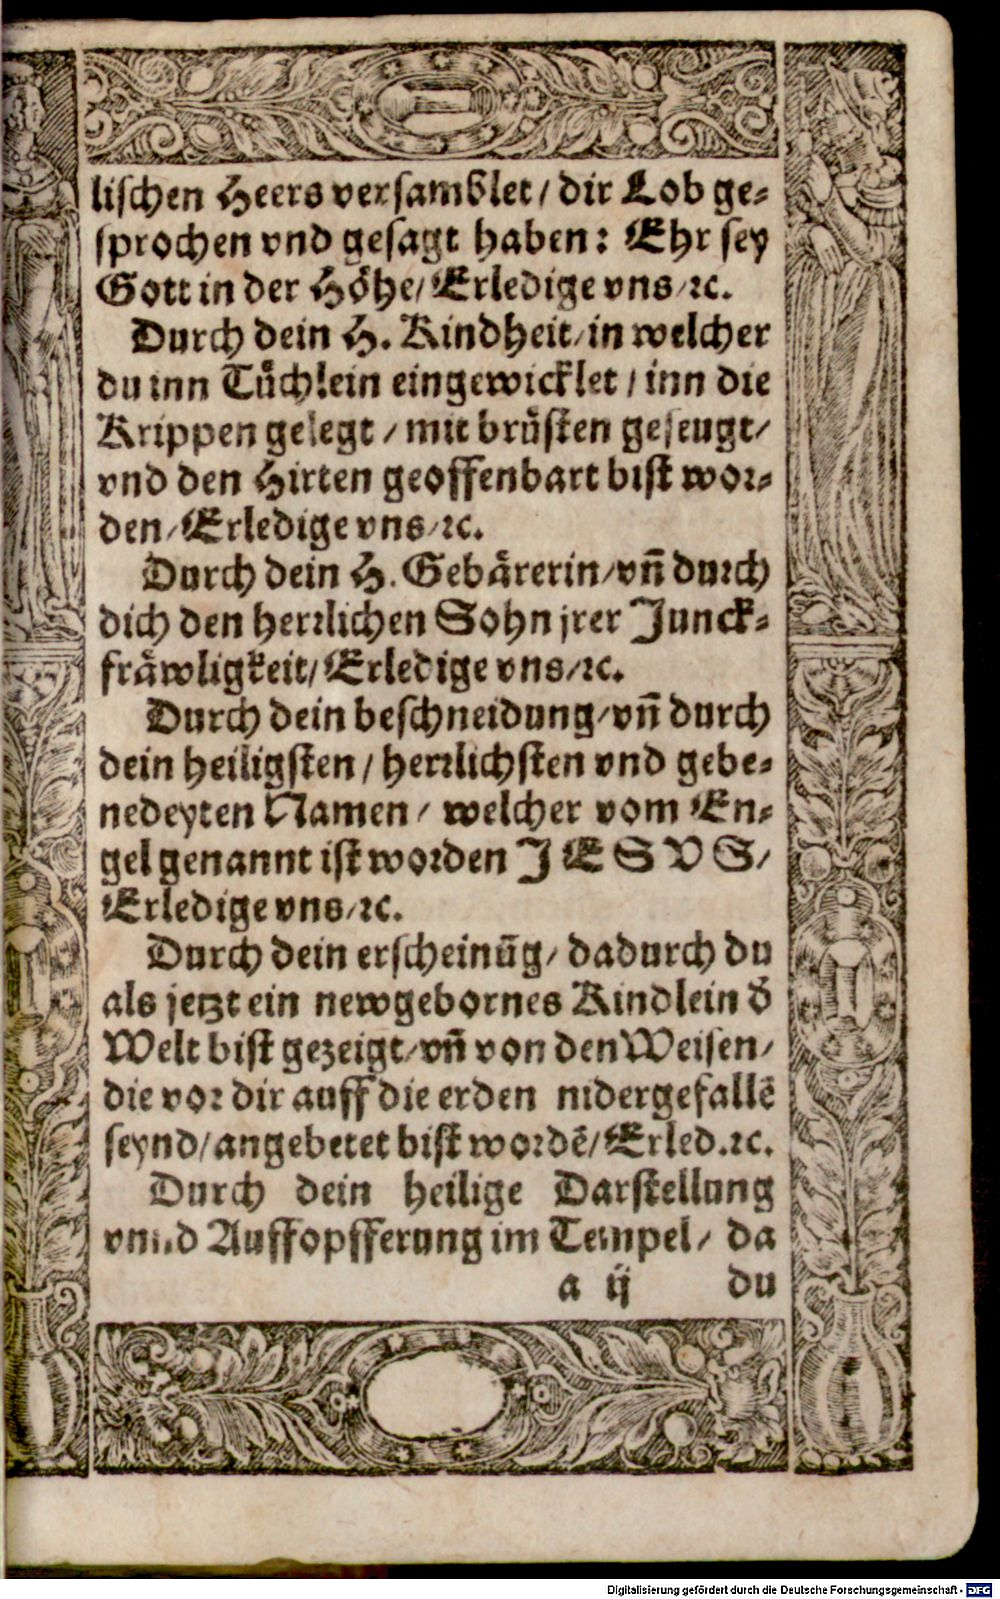 lischen Heers versamblet / dir Lob ge-
sprochen vnd gesagt haben: Ehr sey
Gott in der Höhe / Erledige vns / ꝛc.
Durch dein H. Kindheit / in welcher
du inn Tüchlein eingewicklet / inn die
Krippen gelegt / mit brüsten geseugt /
vnd den Hirten geoffenbart bist wor-
den / Erledige vns / ꝛc.
Durch dein H. Gebärerin / vñ durch
dich den herrlichen Sohn jrer Junck-
fräwligkeit / Erledige vns / ꝛc.
Durch dein beschneidung / vñ durch
dein heiligsten / herrlichsten vnd gebe-
nedeyten Namen / welcher vom En-
gel genannt ist worden J E S V S /
Erledige vns / ꝛc.
Durch dein erscheinūg / dadurch du
als jetzt ein newgebornes Kindlein d̄
Welt bist gezeigt / vñ von den Weisen /
die vor dir auff die erden nidergefallē
seynd / angebetet bist wordē / Erled. ꝛc.
Durch dein heilige Darstellung
vnnd Auffopfferung im Tempel / da
a ij du
Digitalisierung gefördert durch die Deutsche Forschungsgemeinschaft - DFG